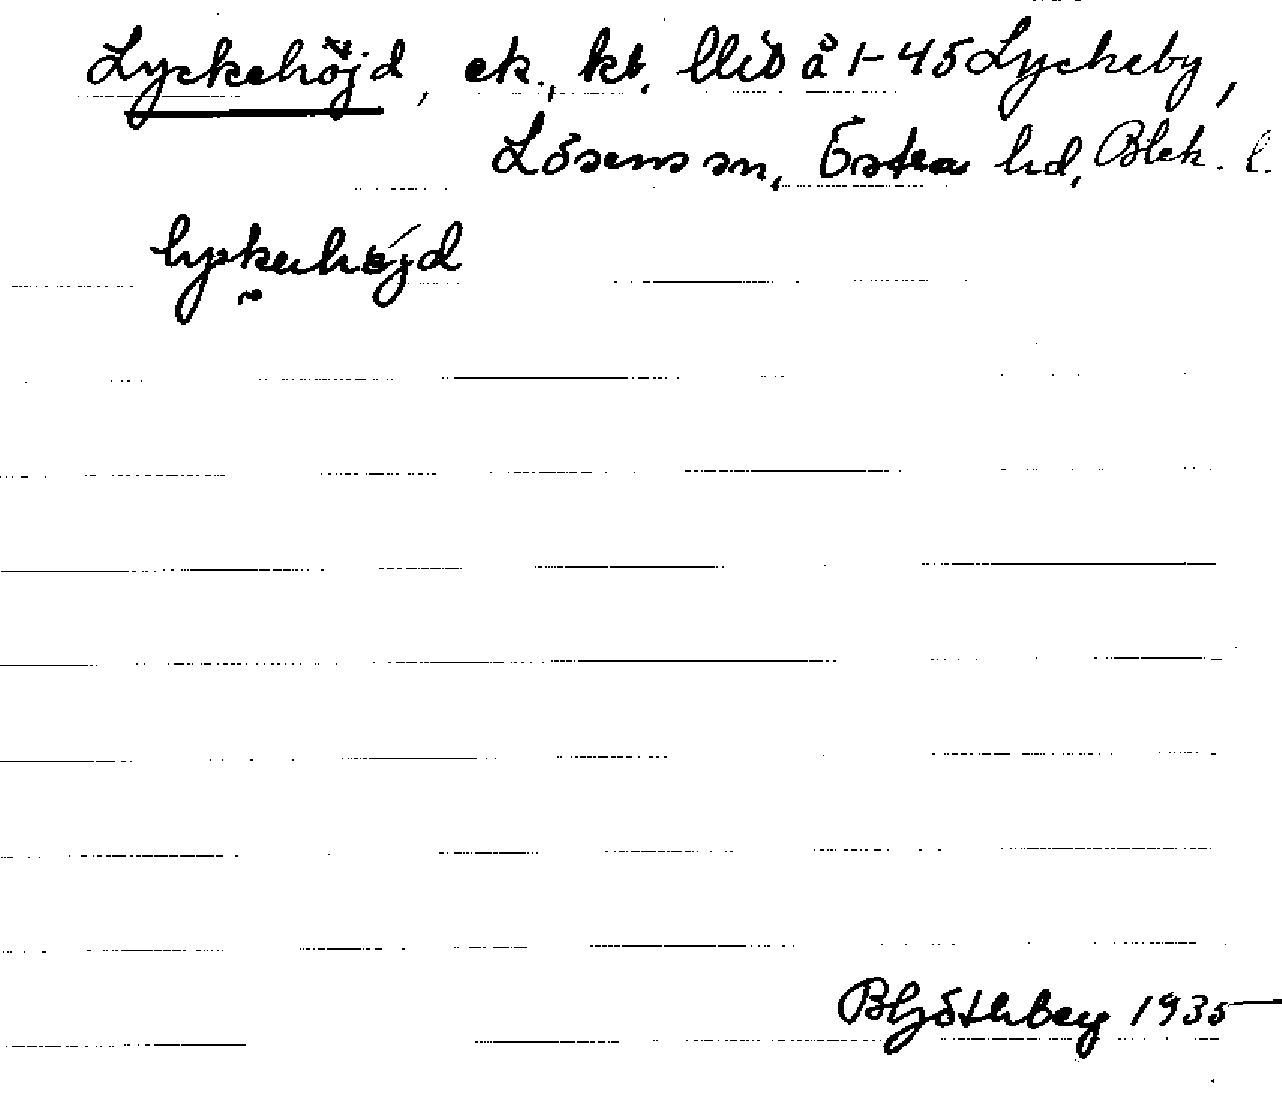 Lyckehöjd, ek., kt. Utid å 1-45 Lyckeby,
Lösens sn, Östra hd, Blek. l.
lykuhöjd
B Hjöthberg 1935